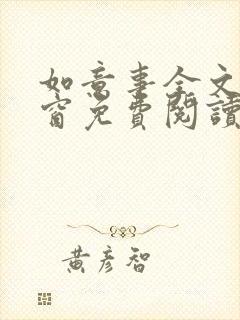 如意事全文
窗免費閱讀
黃彥智